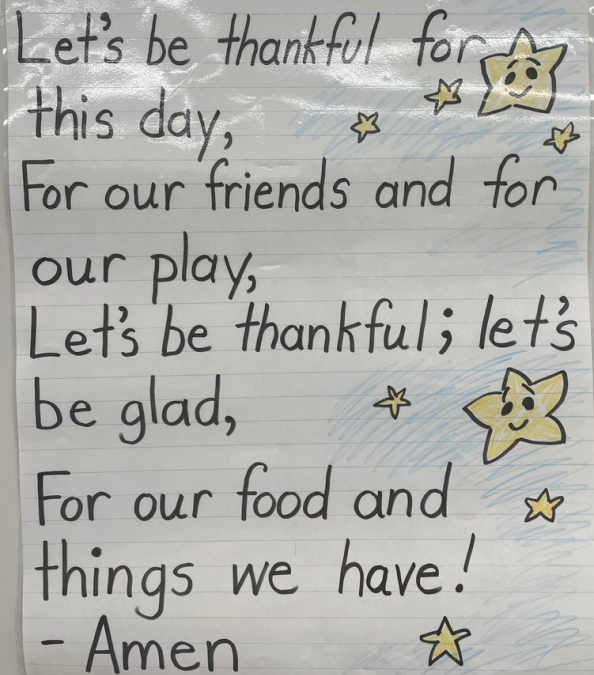 Let's be thankful for
this day,
For our friends and for
our play,
Let's be thankful; let's
be glad,
For our food and
things we have!
- Amen